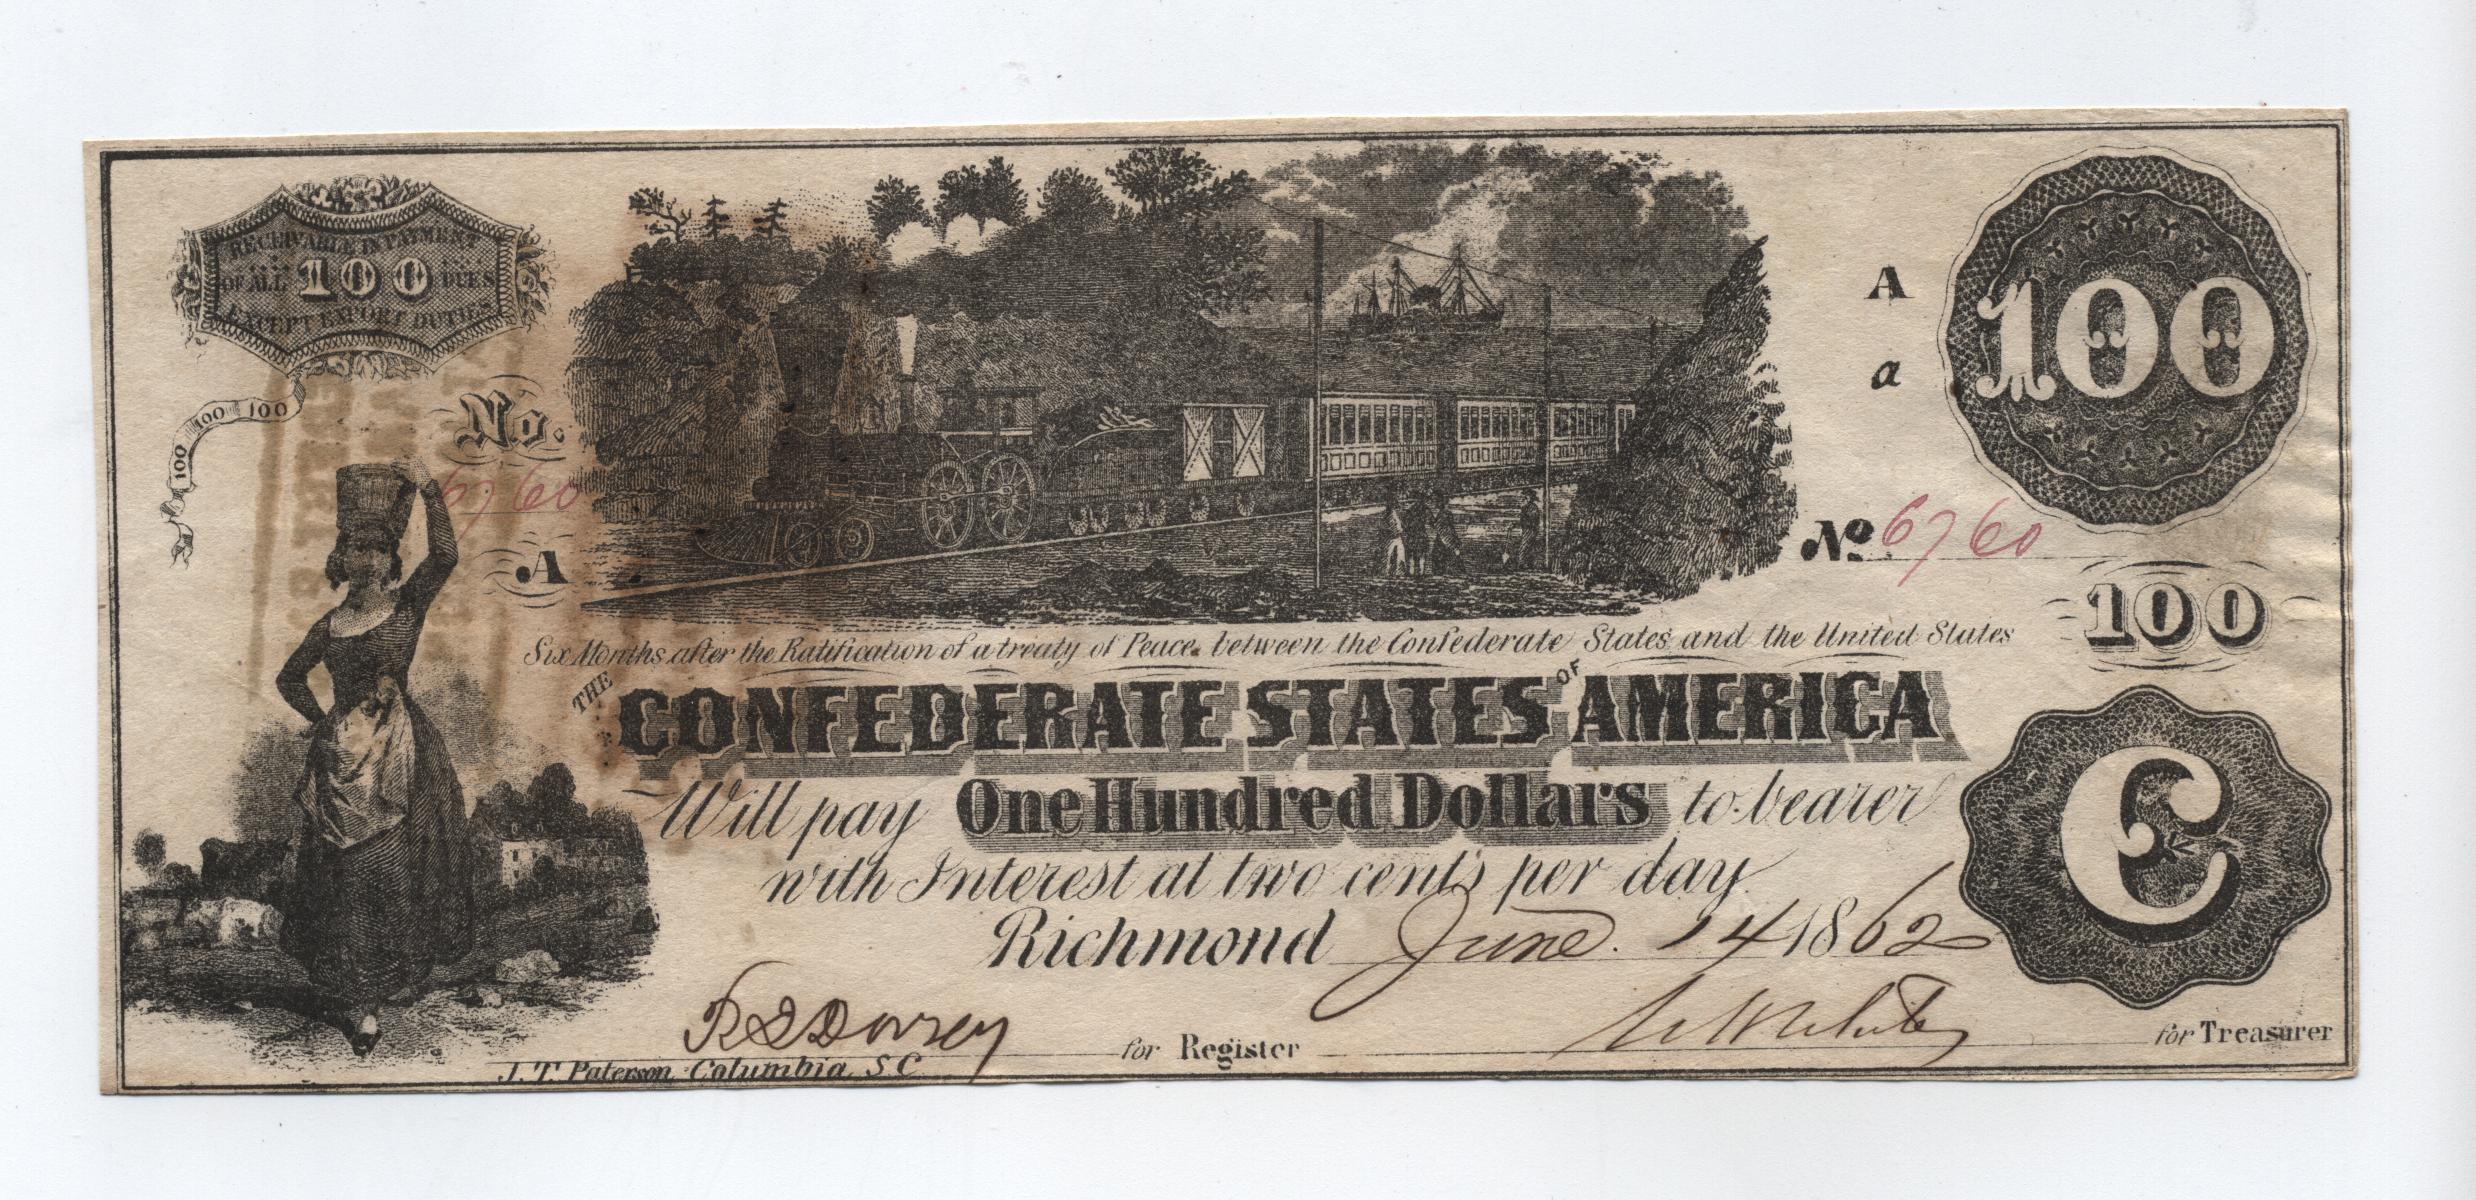 RECEIVABLE IN PAYMENT
OF ALL 100 DUES
EXCEPT EXPORT DUTIES
100 100 100
No.
6760
A
A
a
100
No 6760
100
Six Months after the Ratification of a treaty of Peace between the Confederate States and the United States
THE CONFEDERATE STATES OF AMERICA
Will pay One Hundred Dollars to bearer
with Interest at two cents per day
C
Richmond June 14 1862
for Register
for Treasurer
J. T. Paterson Columbia S C